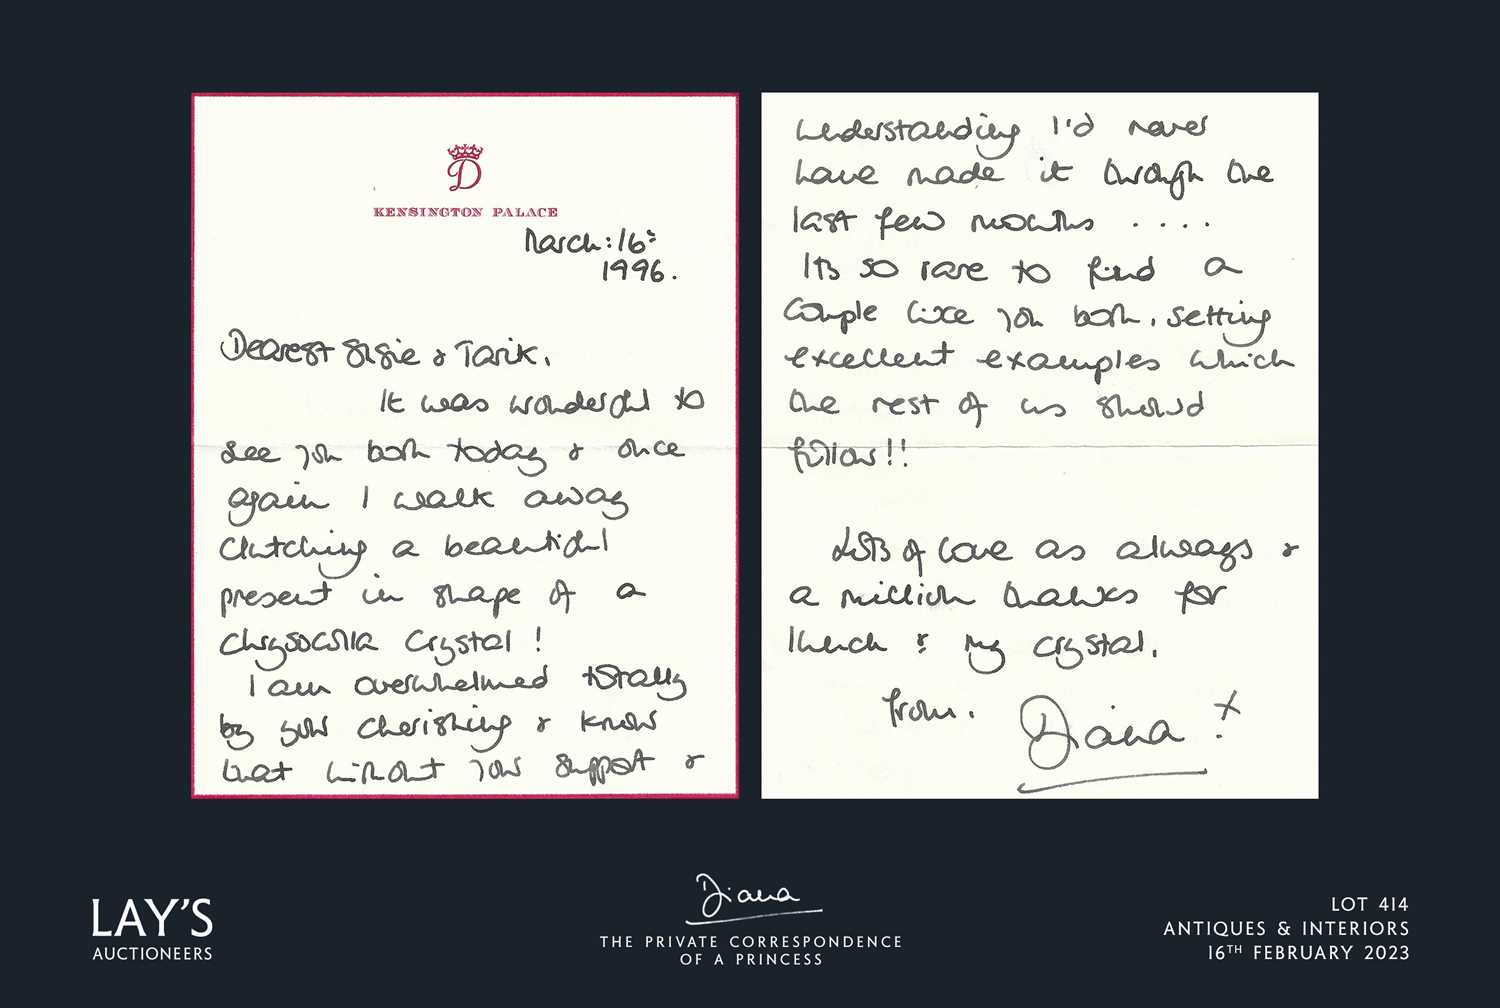 D
KENSINGTON PALACE
March: 16:
1996.
Dearest Susie & Tarik,
It was wonderful to
see you both today & once
again I walk away
clutching a beautiful
present in shape of a
chrysocolla crystal!
I am overwhelmed totally
by your cherishing & know
that without your support &
understanding I'd never
have made it through the
last few months ....
Its so rare to find a
couple like you both, setting
excellent examples which
the rest of us should
follow!!
Lots of love as always &
a million thanks for
lunch & my crystal,
from,
Diana x!
LAY'S
AUCTIONEERS
Diana
THE PRIVATE CORRESPONDENCE
OF A PRINCESS
LOT 414
ANTIQUES & INTERIORS
16TH FEBRUARY 2023